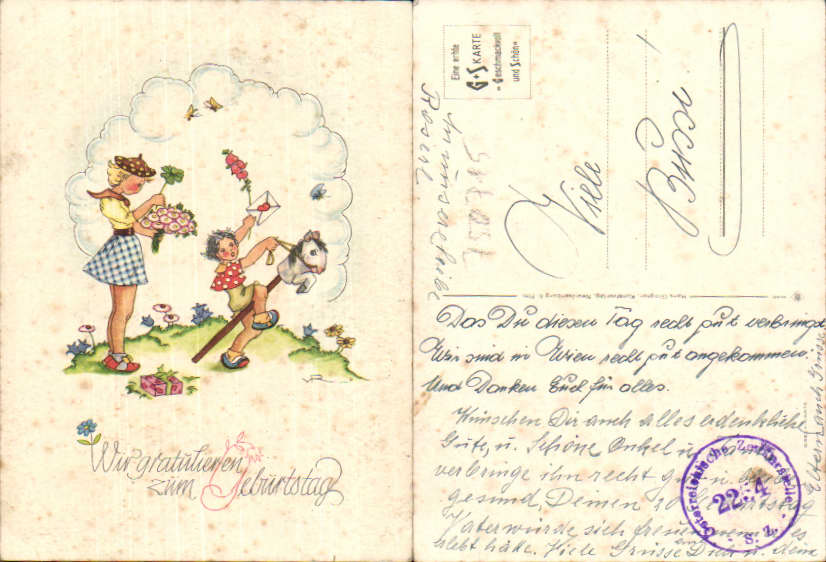 Wir gratulieren
zum Geburtstag
Eine echte
G+S KARTE
= Geschmackvoll
und Schön =
Viele
Bussi
Roserl
Das Du diesen Tag recht gut verbringst
Wir sind in Wien recht gut angekommen.
Und Danken Euch für alles.
Wünschen Dir auch alles erdenkliche
Gute, u. Schöne Onkel u.
verbringe ihn recht gut u.
gesund, Deinen Geburtstag
Vater würde sich freuen wenn es
erlebt hätte. Viele Grüsse Dich u. deine
Eltern auch Grüsse
Österreichische Zensurstelle
2224
S. Z.